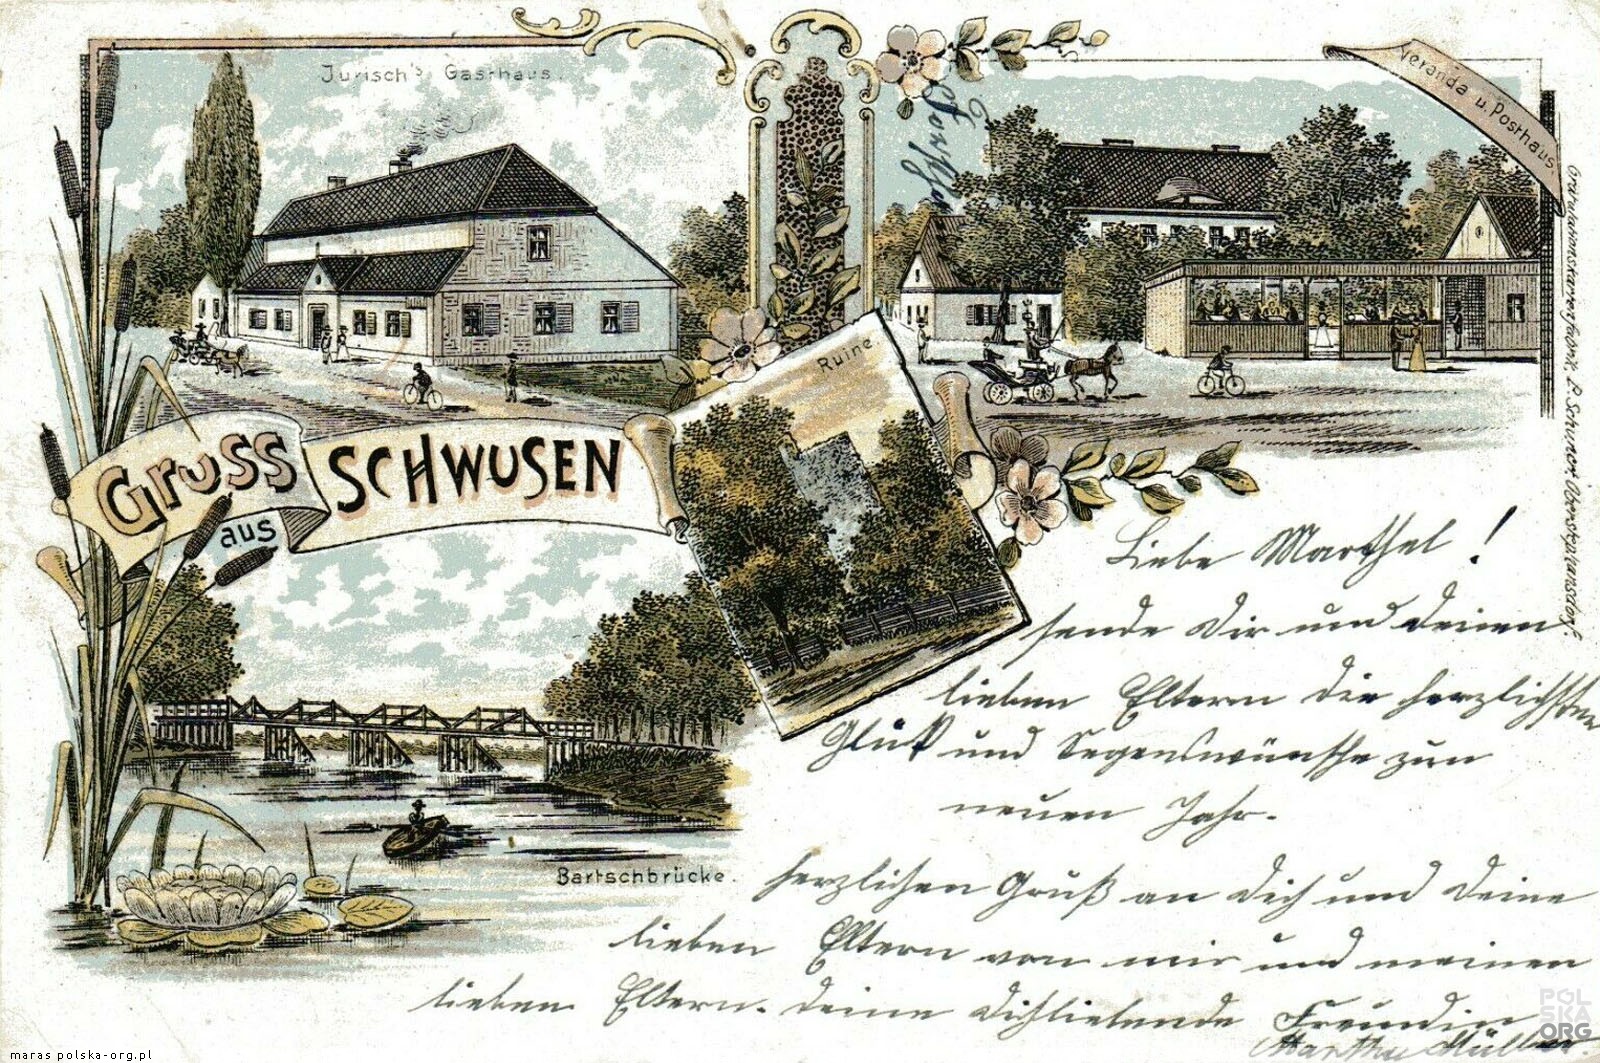 Jurisch's Gasthaus.
Veranda u. Posthaus
Ruine
Gruss
aus
SCHWUSEN
Bartschbrücke.
Liebe Marthel!
sende Dir und deinen
lieben Eltern die herzlichsten
Glück und Segenswünsche zum
neuen Jahr.
herzlichen Gruß an Dich und Deine
lieben Eltern von mir und meinen
lieben Eltern. Deine Dichliebende Freundin
Martha Müller.
maras polska-org.pl
POLSKA.ORG